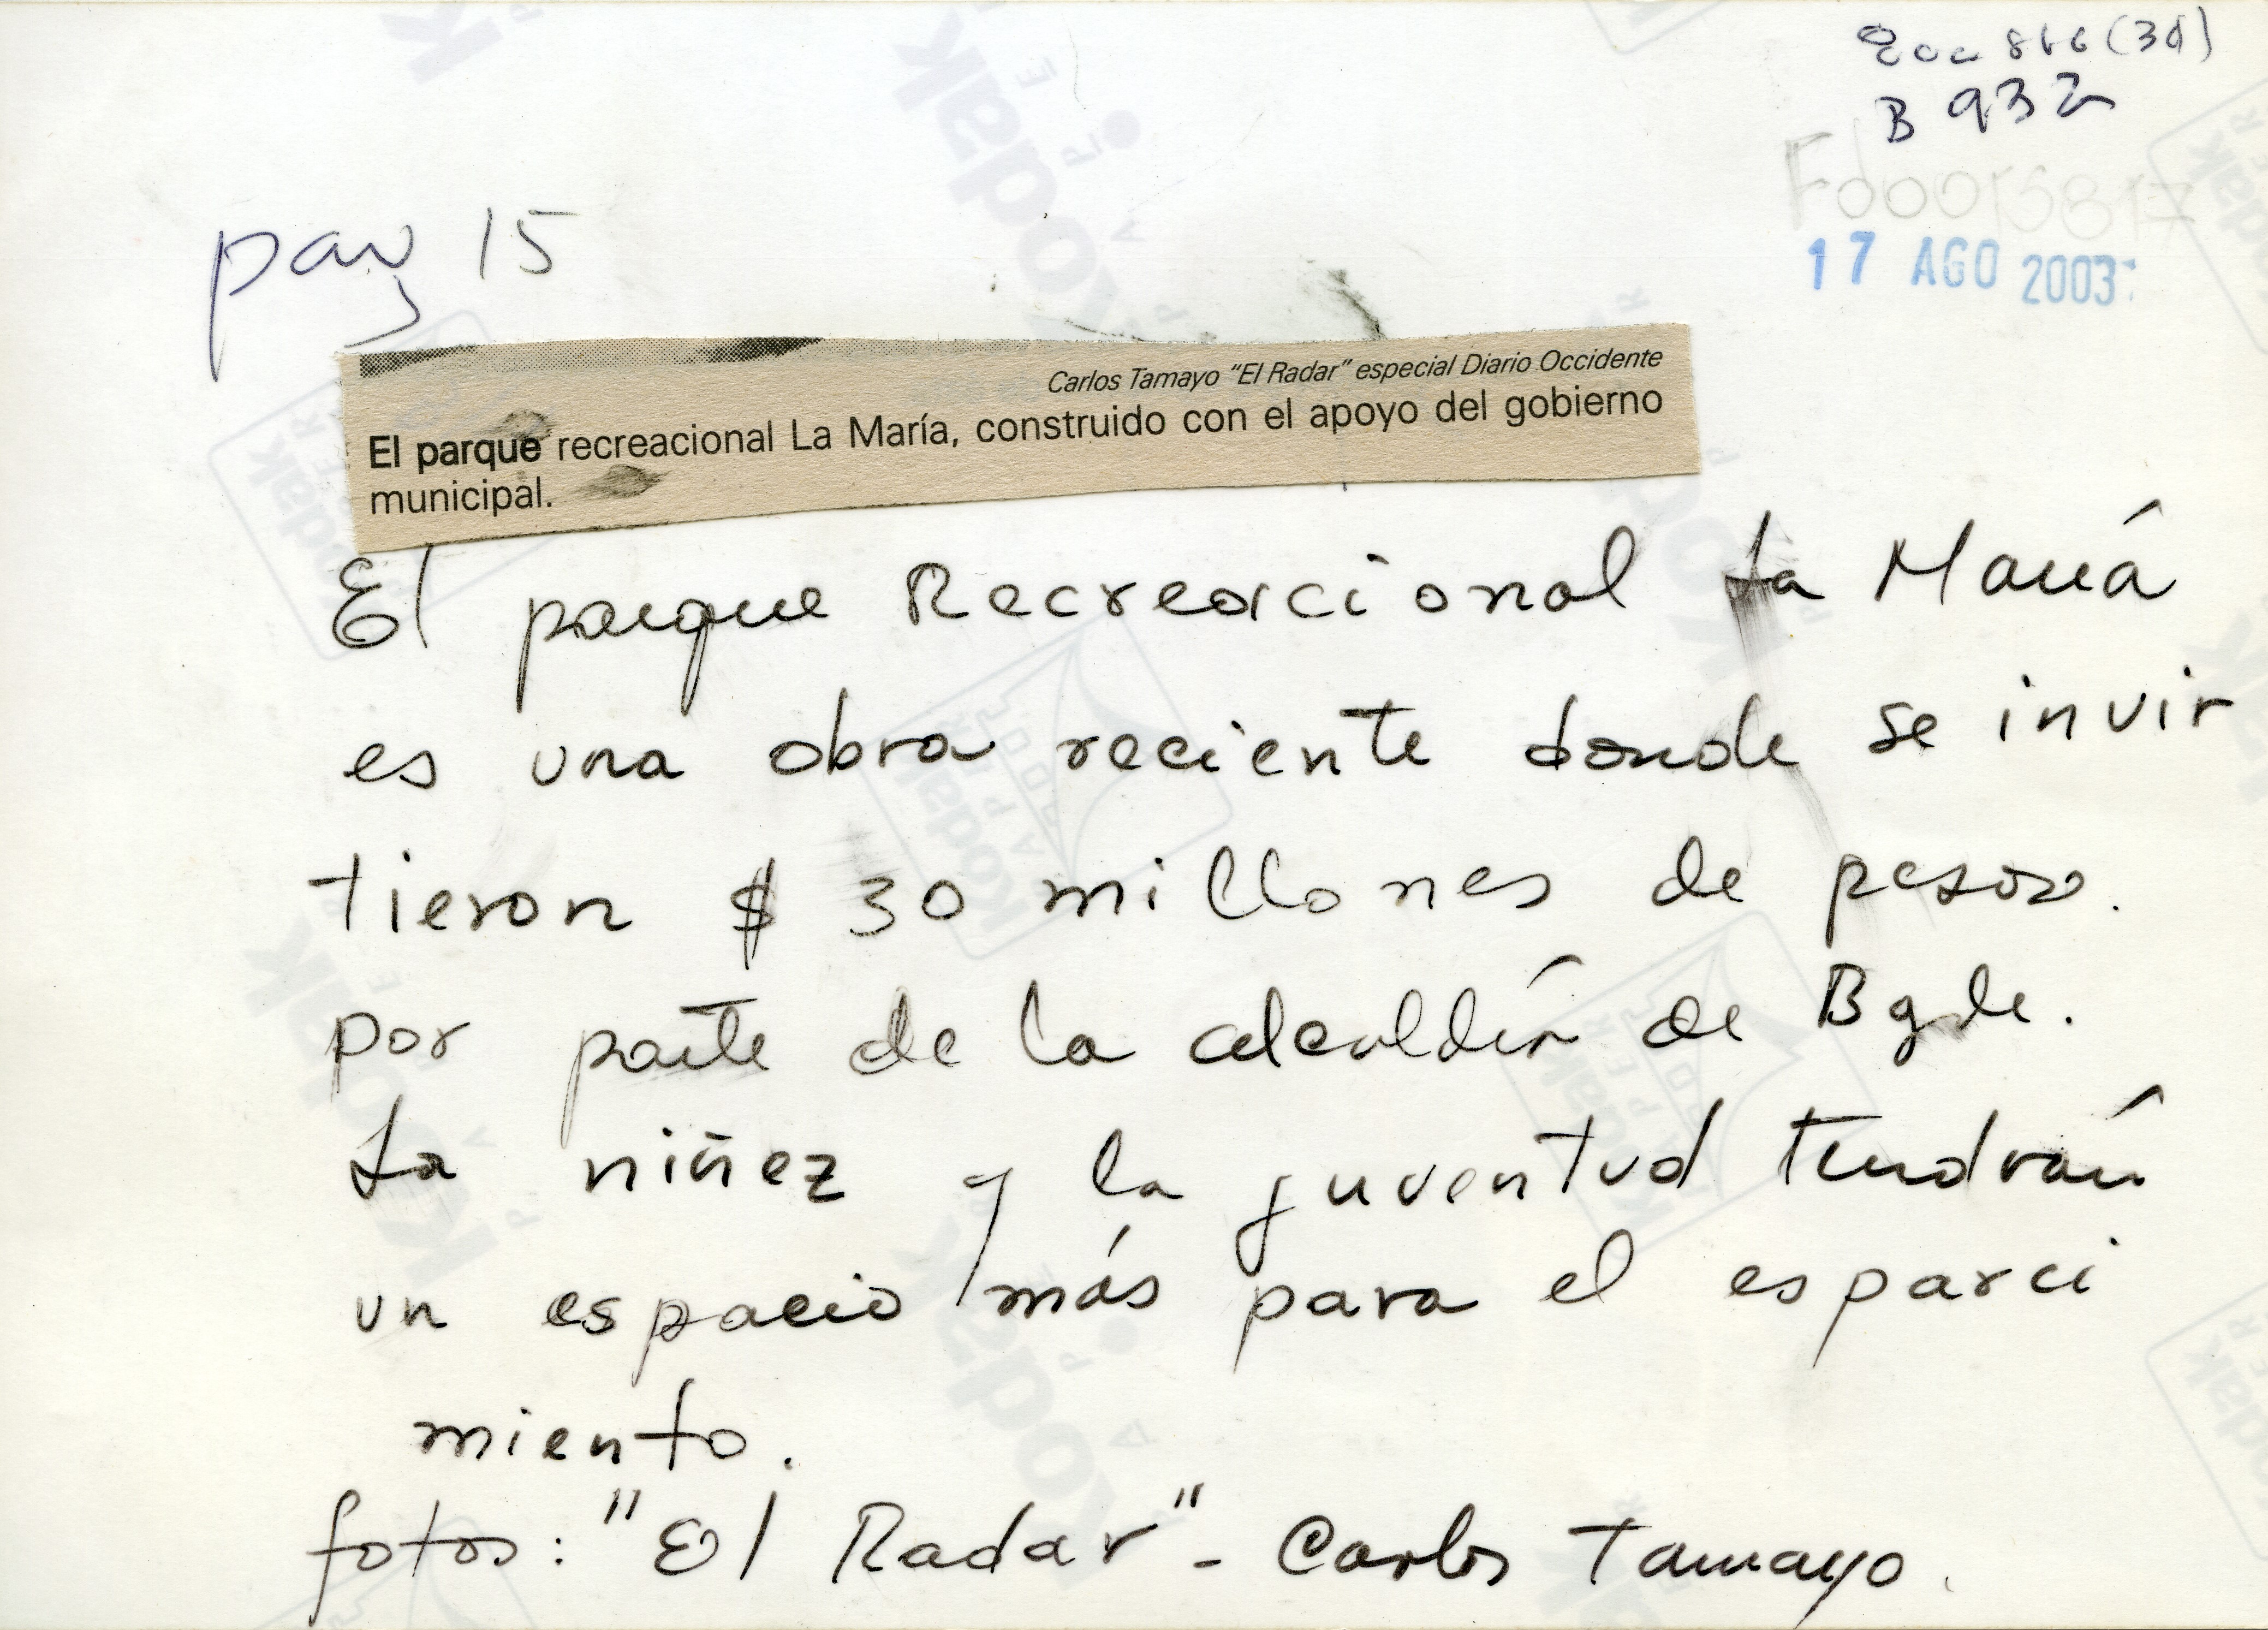 B 932
Fd0015817
17 AGO 2003
pag 15
Carlos Tamayo "El Radar" especial Diario Occidente
El parque recreacional La María, construido con el apoyo del gobierno
municipal.
El parque Recreacional La María
es una obra reciente donde se invir
tieron $ 30 millones de pesos.
por parte de la alcaldía de Bgde.
La niñez y la juventud tendrán
un espacio más para el esparci
miento.
fotos: "El Radar" - Carlos Tamayo.